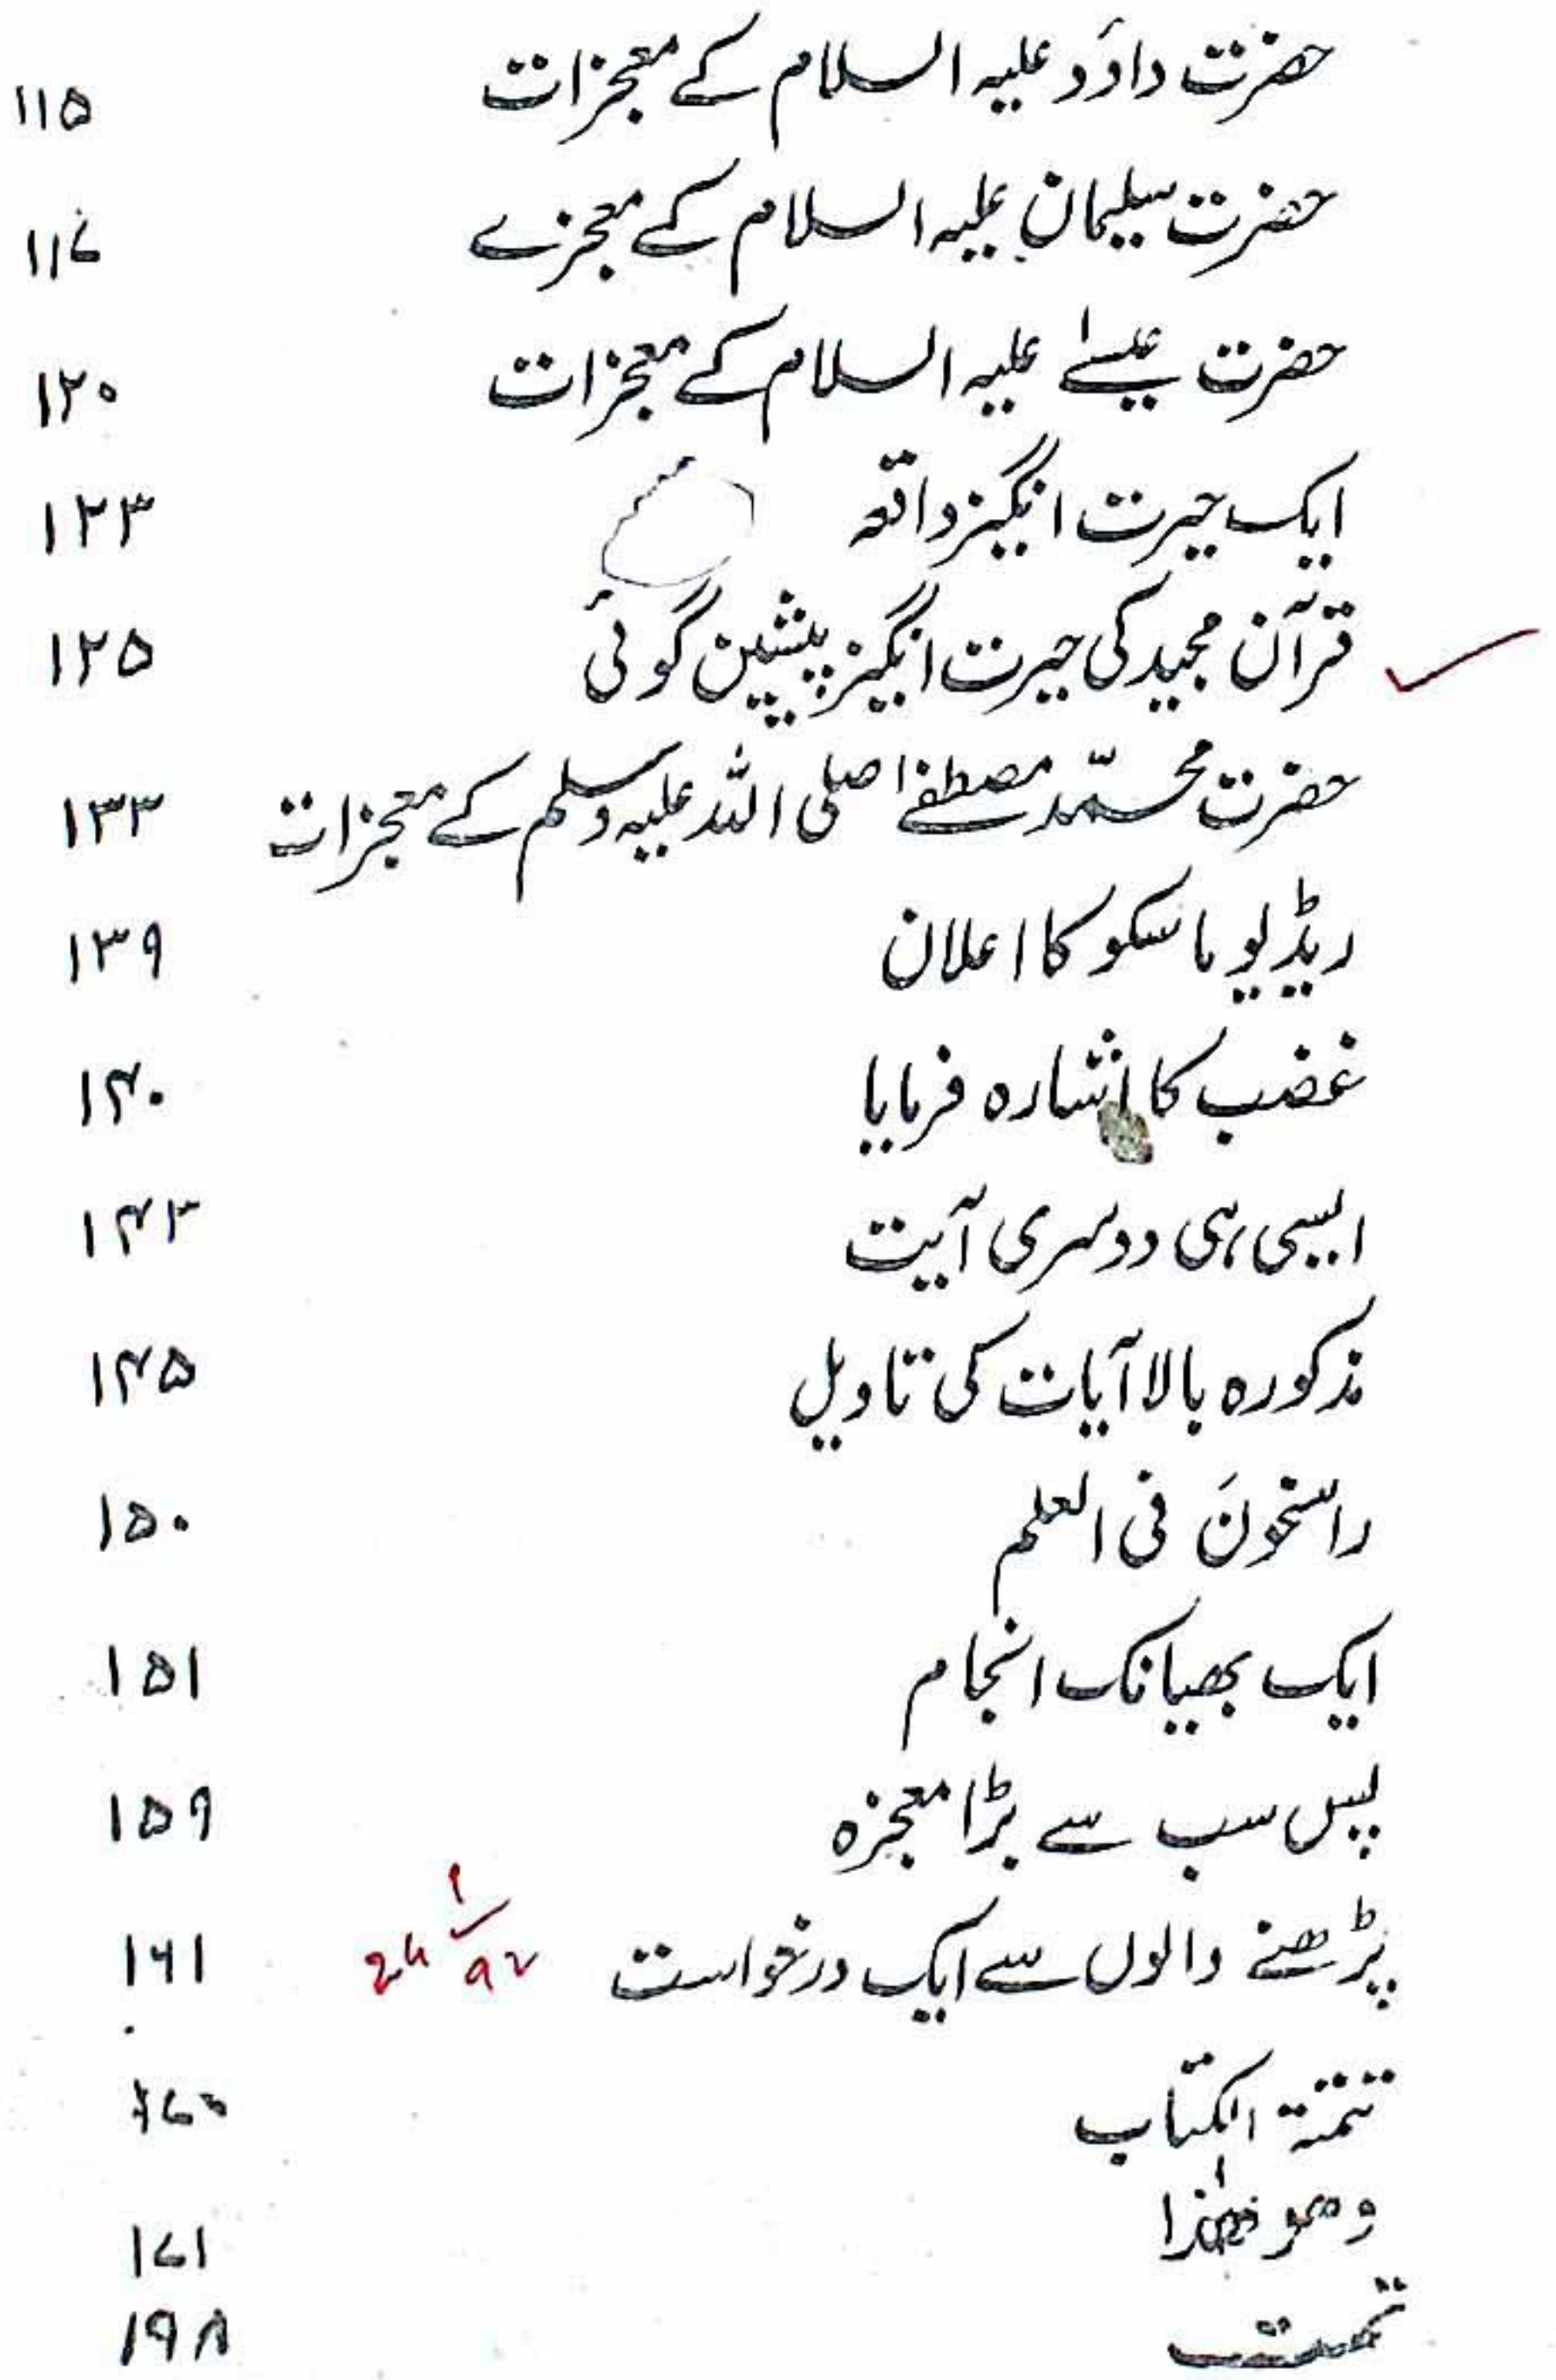 حضرت داؤد علیہ السلام کے معجزات ۱۱۵
حضرت سلیمان علیہ السلام کے معجزے ۱۱۷
حضرت عیسےٰ علیہ السلام کے معجزات ۱۲۰
ایک حیرت انگیز واقعہ ۱۲۳
قرآن مجید کی حیرت انگیز پیشین گوئی ۱۲۵
حضرت محمّد مصطفےٰ صلی اللہ علیہ وسلم کے معجزات ۱۳۳
ریڈیو ماسکو کا اعلان ۱۳۹
غضب کا اشارہ فرمایا ۱۴۰
ایسی ہی دوسری آیت ۱۴۳
مذکورہ بالا آیات کی تاویل ۱۴۵
راسخونَ فی العلم ۱۵۰
ایک بھیانک انجام ۱۵۱
پس سب سے بڑا معجزہ ۱۵۹
پڑھنے والوں سے ایک درخواست ۱۶۱
تتمّۃ الکتاب ۱۷۰
وھو ھٰذا ۱۷۱
تمت ۱۹۸